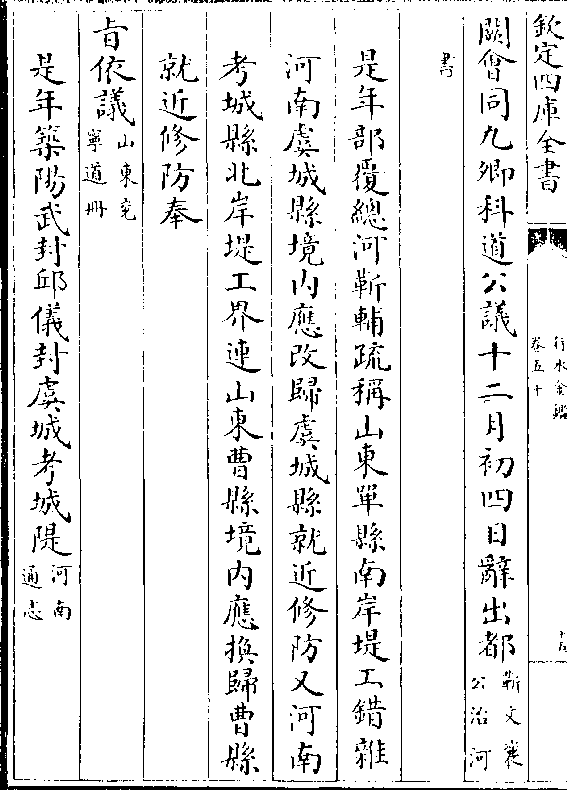 欽定四庫全書
行水金鑑
卷五十
闕會同九卿科道公議十二月初四日辭出都靳文襄公治河
書
是年部覆總河靳輔疏稱山東單縣南岸堤工錯雜
河南虞城縣境内應改歸虞城縣就近修防又河南
考城縣北岸堤工界連山東曹縣境内應換歸曹縣
就近修防奉
旨依議山東兖寧道冊
是年築陽武封邱儀封虞城考城隄河南通志